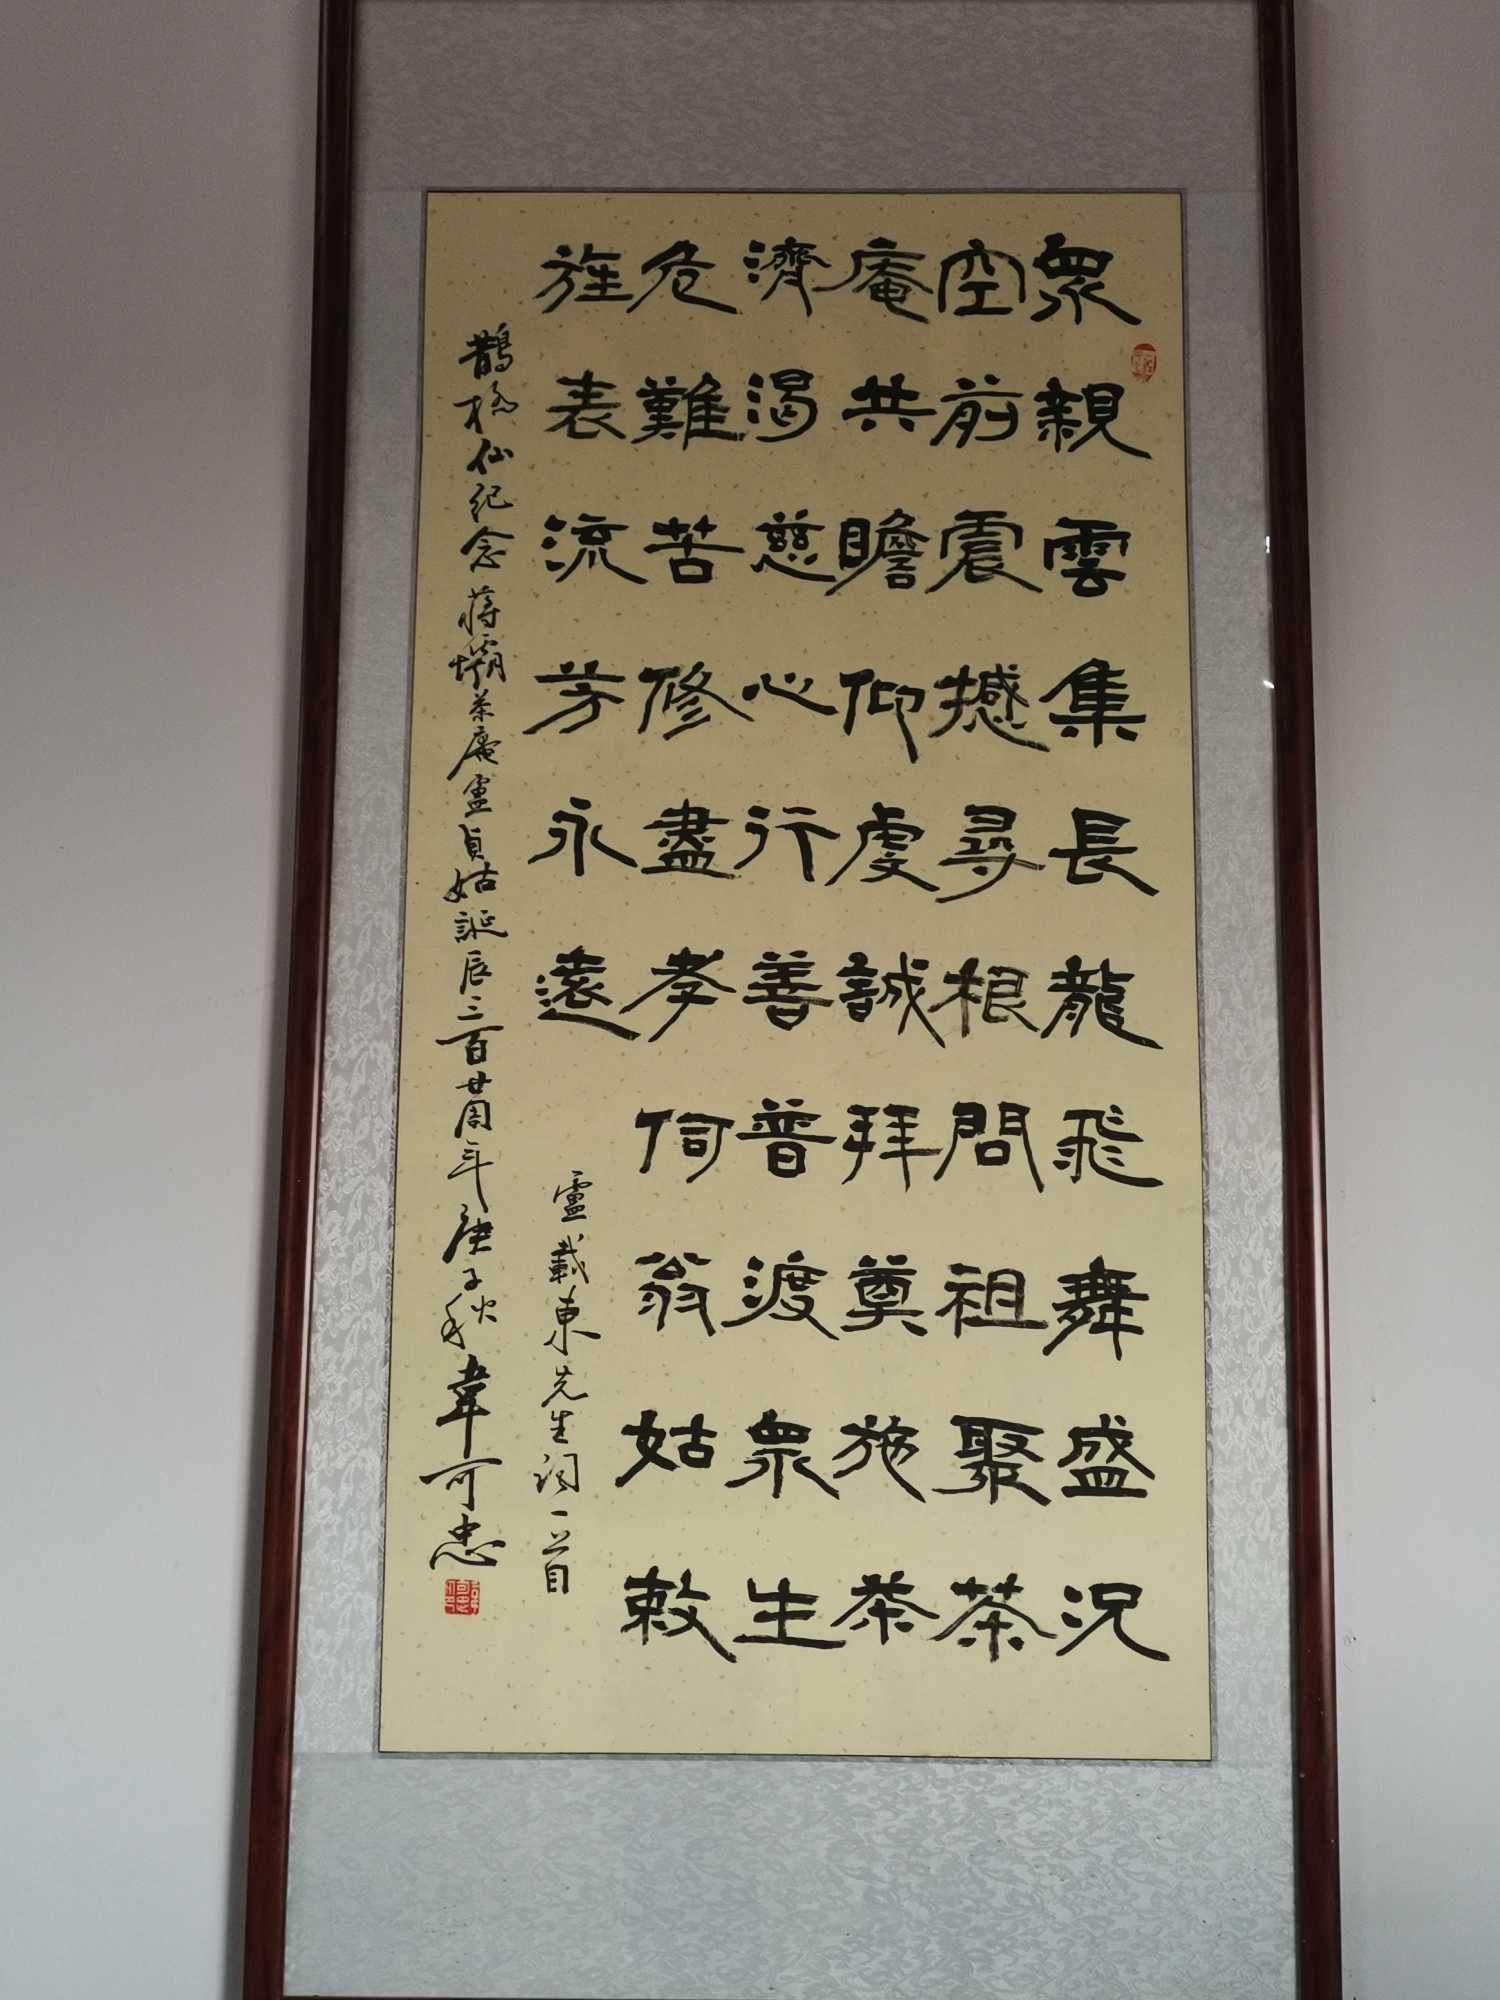 眾親雲集長龍飛舞盛況
空前震撼尋根問祖聚茶
庵共瞻仰虔誠拜奠施茶
濟渴慈心行善普渡眾生
危難苦修盡孝伺翁姑敕
旌表流芳永遠
盧載東先生詞一首
鵲橋仙紀念蔣壩茶庵盧貞姑誕辰三百廿周年庚子秋韋可忠